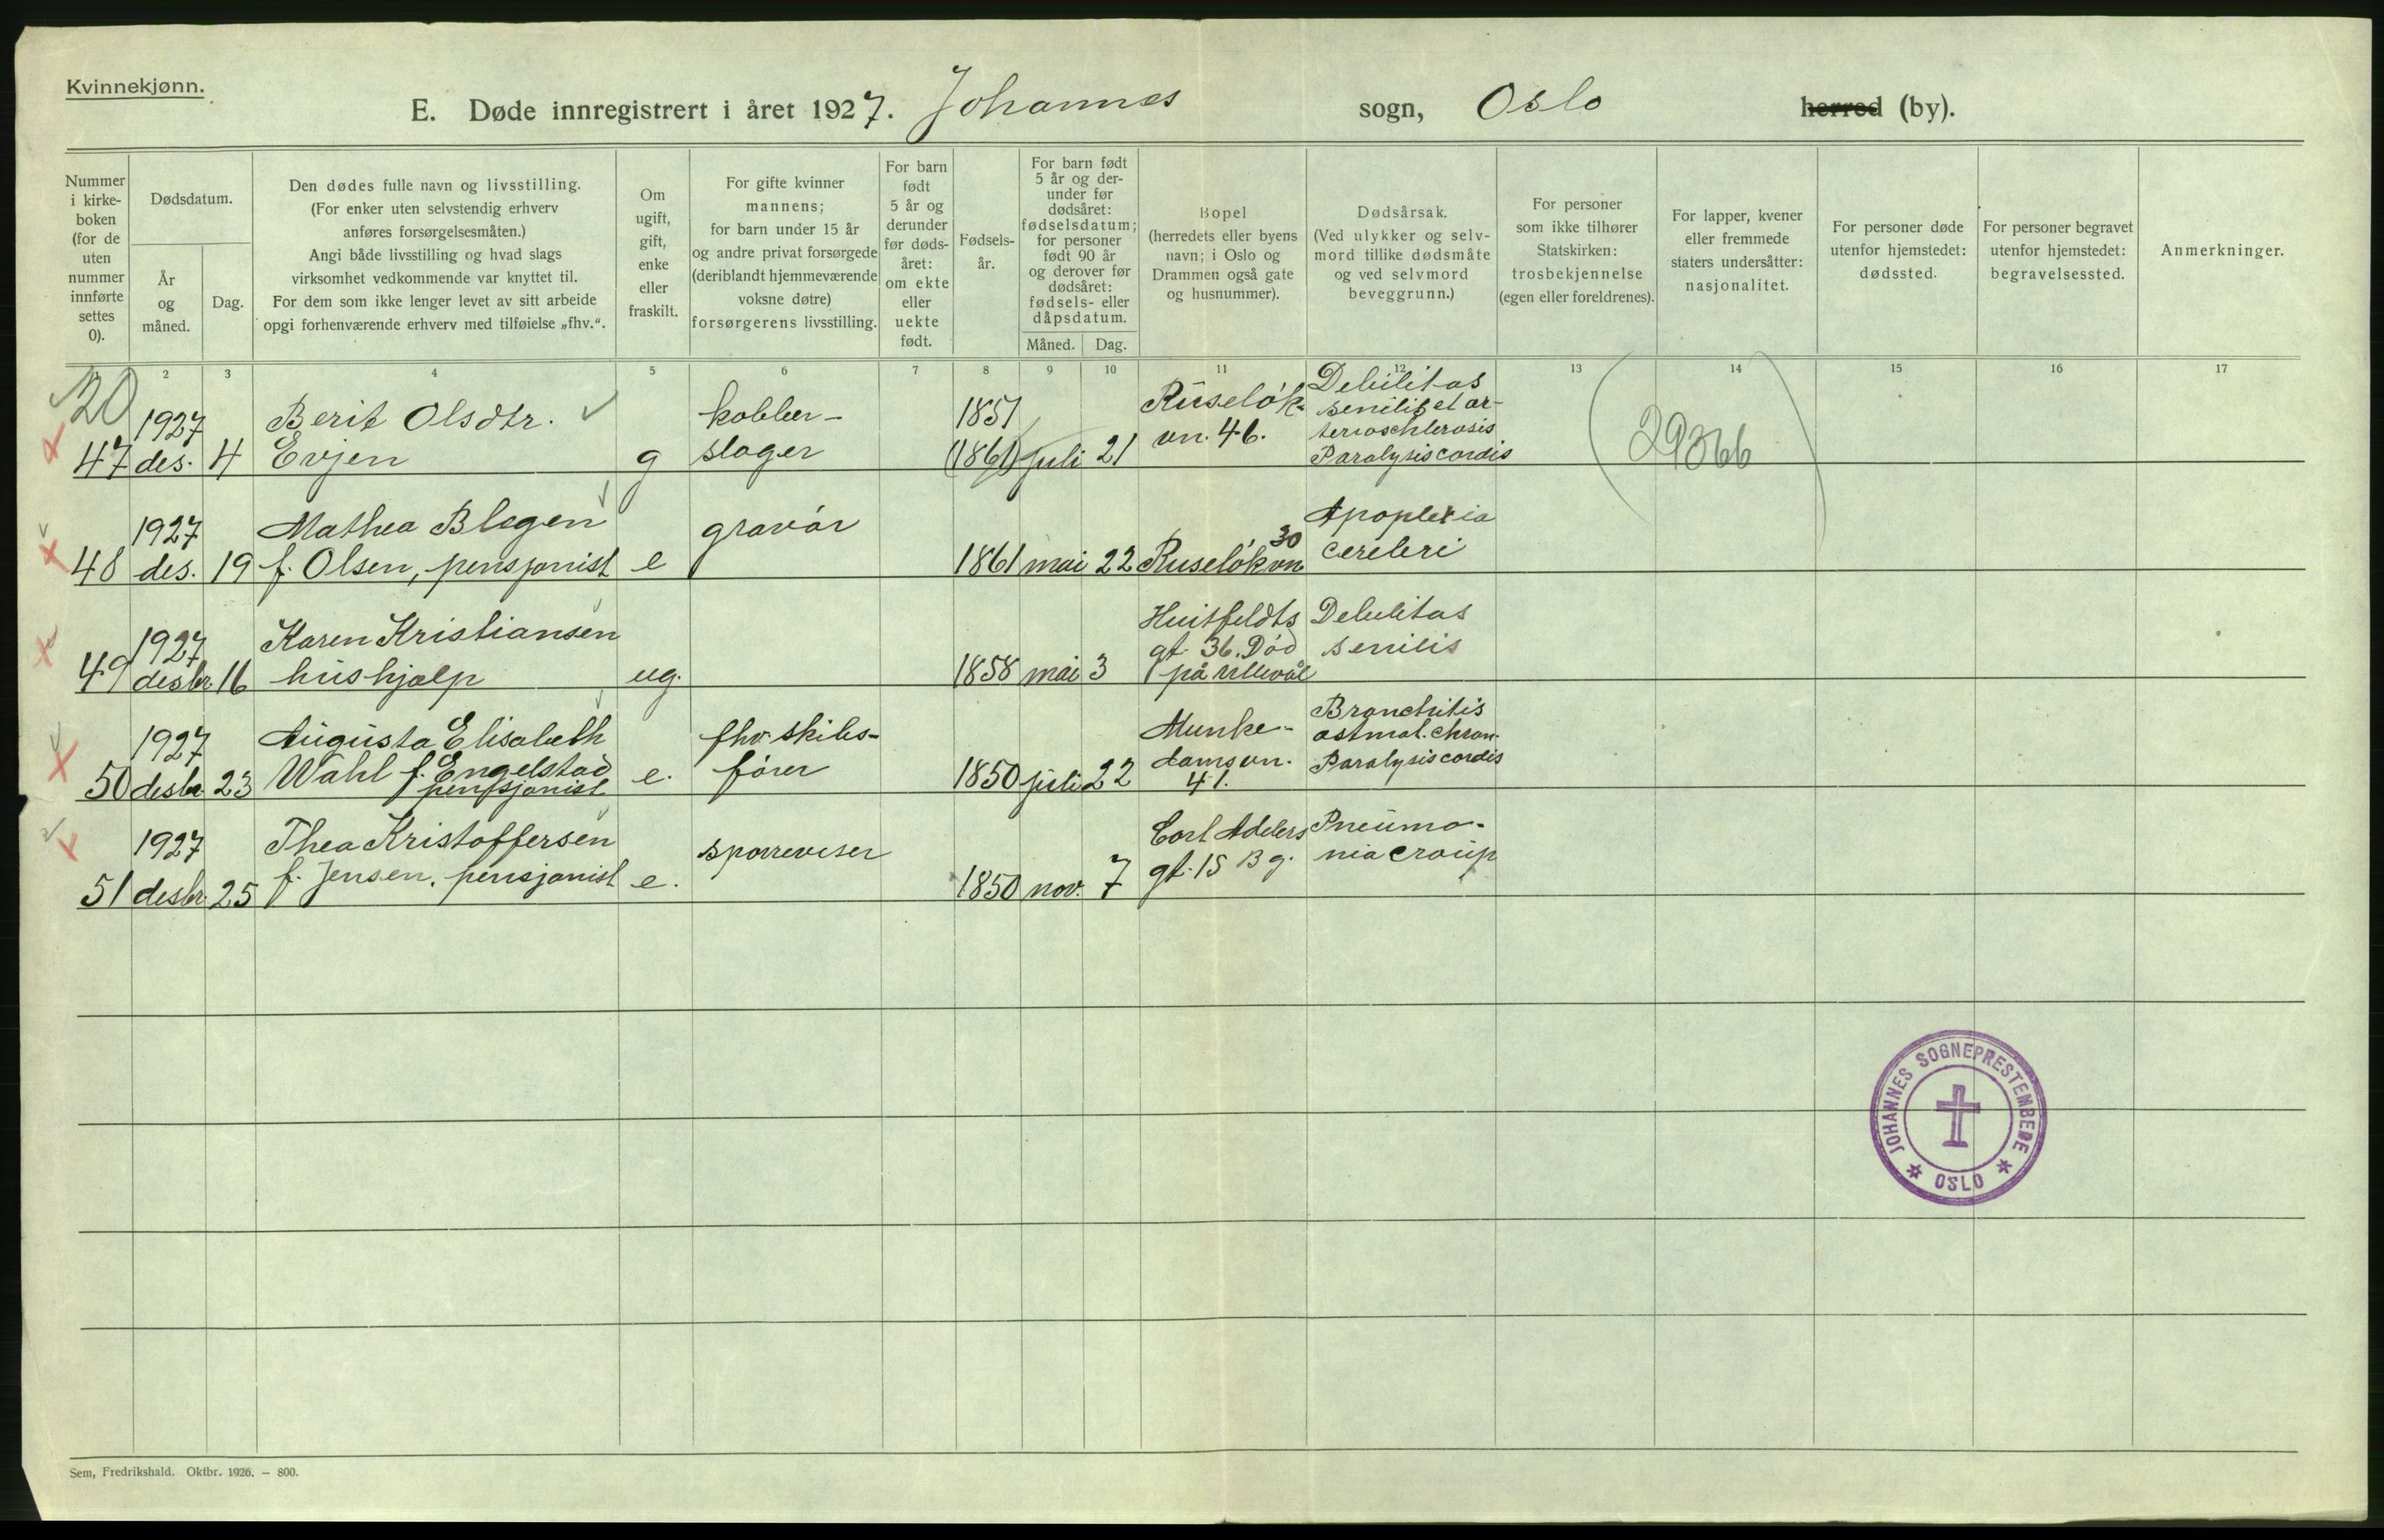 Kvinnekjønn.
E. Døde innregistrert i året 1927. Johannes sogn, Oslo herred (by).
Nummer i kirke- boken (for de uten nummer innførte settes 0).
Dødsdatum.
År og måned.
Dag.
Den dødes fulle navn og livsstilling.
(For enker uten selvstendig erhverv
anføres forsørgelsesmåten.)
Angi både livsstilling og hvad slags
virksomhet vedkommende var knyttet til.
For dem som ikke lenger levet av sitt arbeide
opgi forhenværende erhverv med tilføielse „fhv.“.
Om ugift, gift, enke eller fraskilt.
For gifte kvinner
mannens;
for barn under 15 år
og andre privat forsørgede
(deriblandt hjemmeværende
voksne døtre)
forsørgerens livsstilling.
For barn født 5 år og derunder før døds- året: om ekte eller uekte født.
Fødsels- år.
For barn født
5 år og der-
under før
dødsåret:
fødselsdatum;
for personer
født 90 år
og derover før
dødsåret:
fødsels- eller
dåpsdatum.
Måned. Dag.
Bopel
(herredets eller byens
navn; i Oslo og
Drammen også gate
og husnummer).
Dødsårsak.
(Ved ulykker og selv-
mord tillike dødsmåte
og ved selvmord
beveggrunn.)
For personer
som ikke tilhører
Statskirken:
trosbekjennelse
(egen eller foreldrenes).
For lapper, kvener
eller fremmede
staters undersåtter:
nasjonalitet.
For personer døde
utenfor hjemstedet:
dødssted.
For personer begravet
utenfor hjemstedet:
begravelsessted.
Anmerkninger.
2 3 4 5 6 7 8 9 10 11 12 13 14 15 16 17
20
1927 Berit Olsdtr. kobber- 1851 Ruseløk- Debilitas
senilis et ar-
vn. 46. terioschlerosis
47 des. 4 Evjen g slager (1861) juli 21 Paralysis cordis
1927 Mathea Blegen gravør Apoplexia
30
48 des. 19 f. Olsen, pensjonist e 1861 mai 22 Ruseløkvn cerebri
1927 Karen Kristiansen Huitfeldts Debilitas
gt. 36. Død senilis
49 desbr. 16 hushjælp ug. 1858 mai 3 på Ullevål
1927 Augusta Elisabeth fhv. skibs- Munke- Bronchitis
astmat. chron.
50 desbr 23 Wahl f. Engelstad e. fører 1850 juli 22 damsvn. Paralysis cordis
pensjonist 41.
1927 Thea Kristoffersen sporreviser Cort Adelers Pneumo-
51 desbr. 25 f. Jensen, pensjonist e. 1850 nov. 7 gt. 15 Bg. nia croup
JOHANNES SOGNEPRESTEMBEDE
* OSLO *
Sem, Fredrikshald. Oktbr. 1926. — 800.